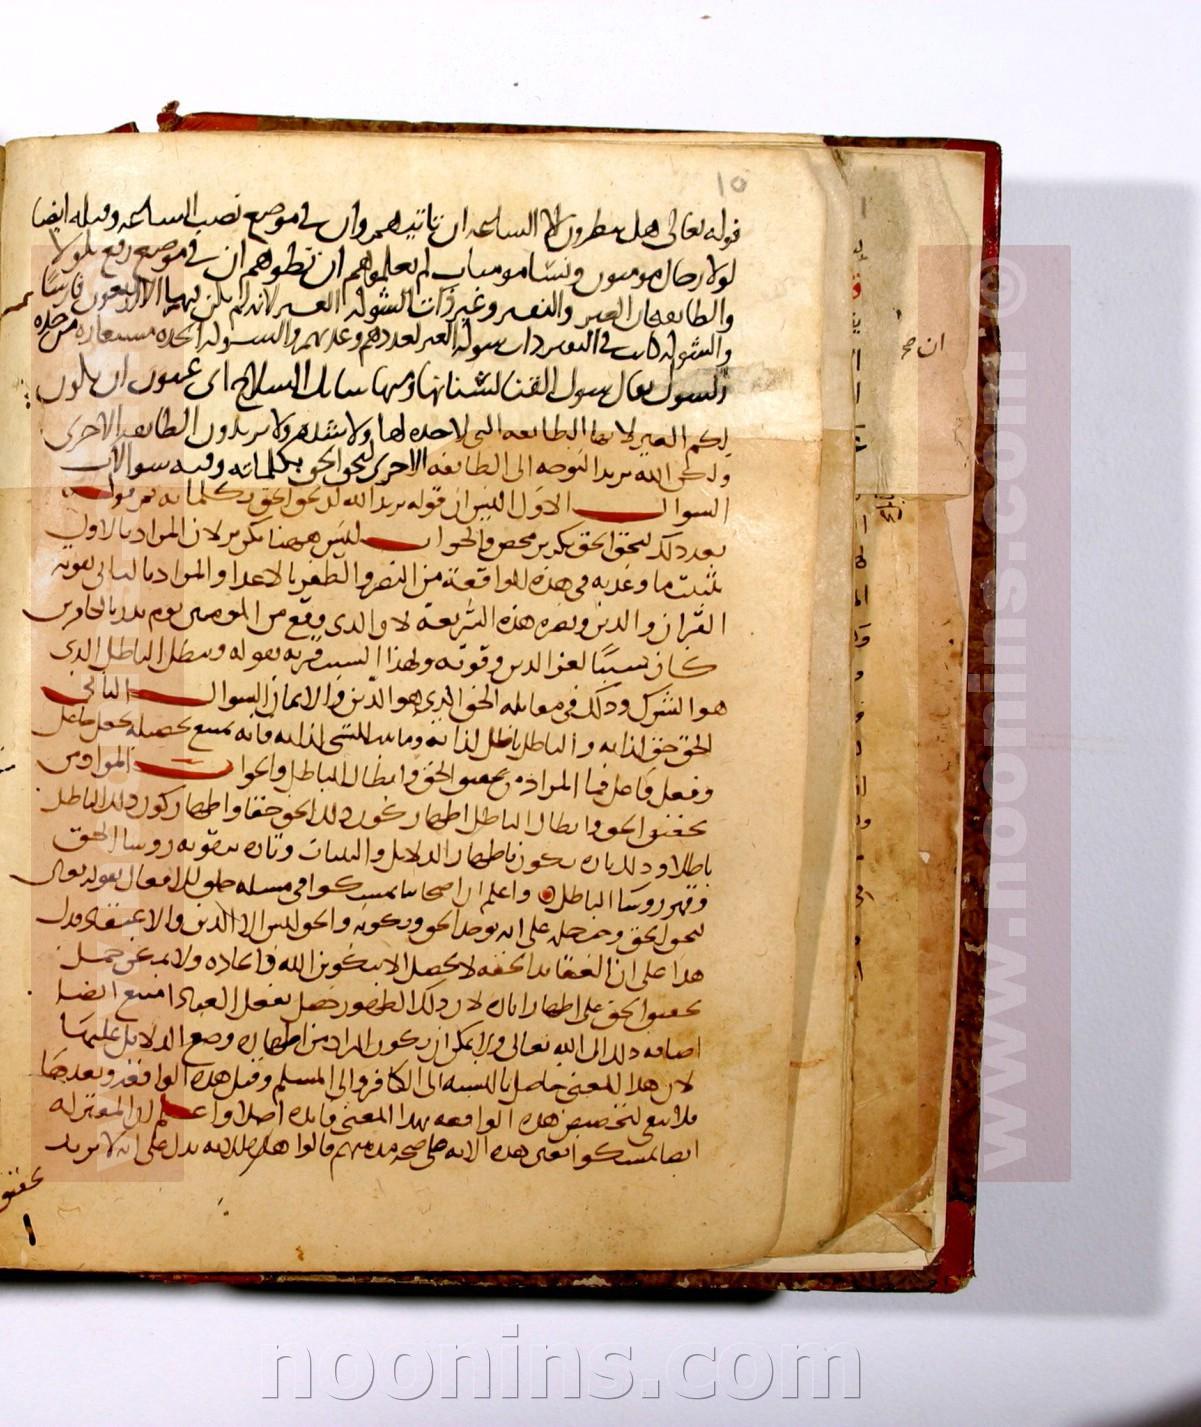 ١٥
قوله تعالى هل ينظرون الا الساعه ان تاتيهم وان في موضع نصب الساعه وقبله ايضا
لولا رجال مومنون ونسا مومنات لم تعلموهم ان تطوهم ان في موضع رفع بلولا
والطايفتان العير والنفير وغير ذات الشوكه العير لانه لم يكن فيها الا اربعون فارسا
والشوكه كانت في النفير لعددهم وعدتهم والشوكه الحده مستعاره من حده
الشوك يقال شوك القنا لشباتها ومنها شايك السلاح اى تمنون ان يكون
لكم العير لانها الطايفه التي لا حده لها ولا شده ولا تريدون الطايفه الاخرى
ولكن الله يريد التوجه الى الطايفه الاخرى ليحق الحق بكلماته وفيه سوالات
السوال الاول اليس ان قوله يريد الله ان يحق الحق بكلماته ثم قوله
بعد ذلك ليحق الحق تكرير محض والجواب ليس ههنا تكرير لان المراد بالاول
تثبيت ما وعد به في هذه الواقعة من النصر والظفر بالاعدا والمراد بالثاني تقويه
القران والدين ونصره هذه الشريعة لان الذي وقع من المومنين يوم بدر بالكافرين
كان سببا لعز الدين وقوته ولهذا السبب قرنه بقوله ويبطل الباطل الذي
هو الشرك وذلك في مقابله الحق الذي هو الدين والايمان السوال الثاني
الحق حق لذاته والباطل باطل لذاته وما ثبت للشي لذاته فانه يمتنع تحصيله بجعل جاعل
وفعل فاعل فما المراد من تحقيق الحق وابطال الباطل والجواب المراد من
تحقيق الحق وابطال الباطل اظهار كون ذلك الحق حقا واظهار كون ذلك الباطل
باطلا وذلك تاره يكون باظهار الدلايل والبينات وتاره بتقويه روسا الحق
وقهر روسا الباطل واعلم ان اصحابنا تمسكوا في مسله خلق الافعال بقوله تعالى
ليحق الحق وحمله على انه يوجد الحق ويكونه والحق ليس الا الدين والاعتقاد فدل
هذا على ان العقايد الحقه لا تحصل الا بتكوين الله قالوا ولا يمكن حمل
تحقيق الحق على اظهار اثاره لان ذلك الظهور حصل بفعل العباد امتنع ايضا
اضافه ذلك الى الله تعالى ولا يمكن ان يكون المراد من اظهاره وضع الدلايل عليها
لان هذا المعنى حاصل بالنسبه الى الكافر والى المسلم وقبل هذه الواقعة وبعدها
فلا يبقى لتخصيص هذه الواقعه بهذا المعنى فايده اصلا واعلم ان المعتزله
ايضا تمسكوا بعين هذه الايه على صحه مذهبهم قالوا هذه الايه تدل على انه لا يريد
تحقيق
ان صح